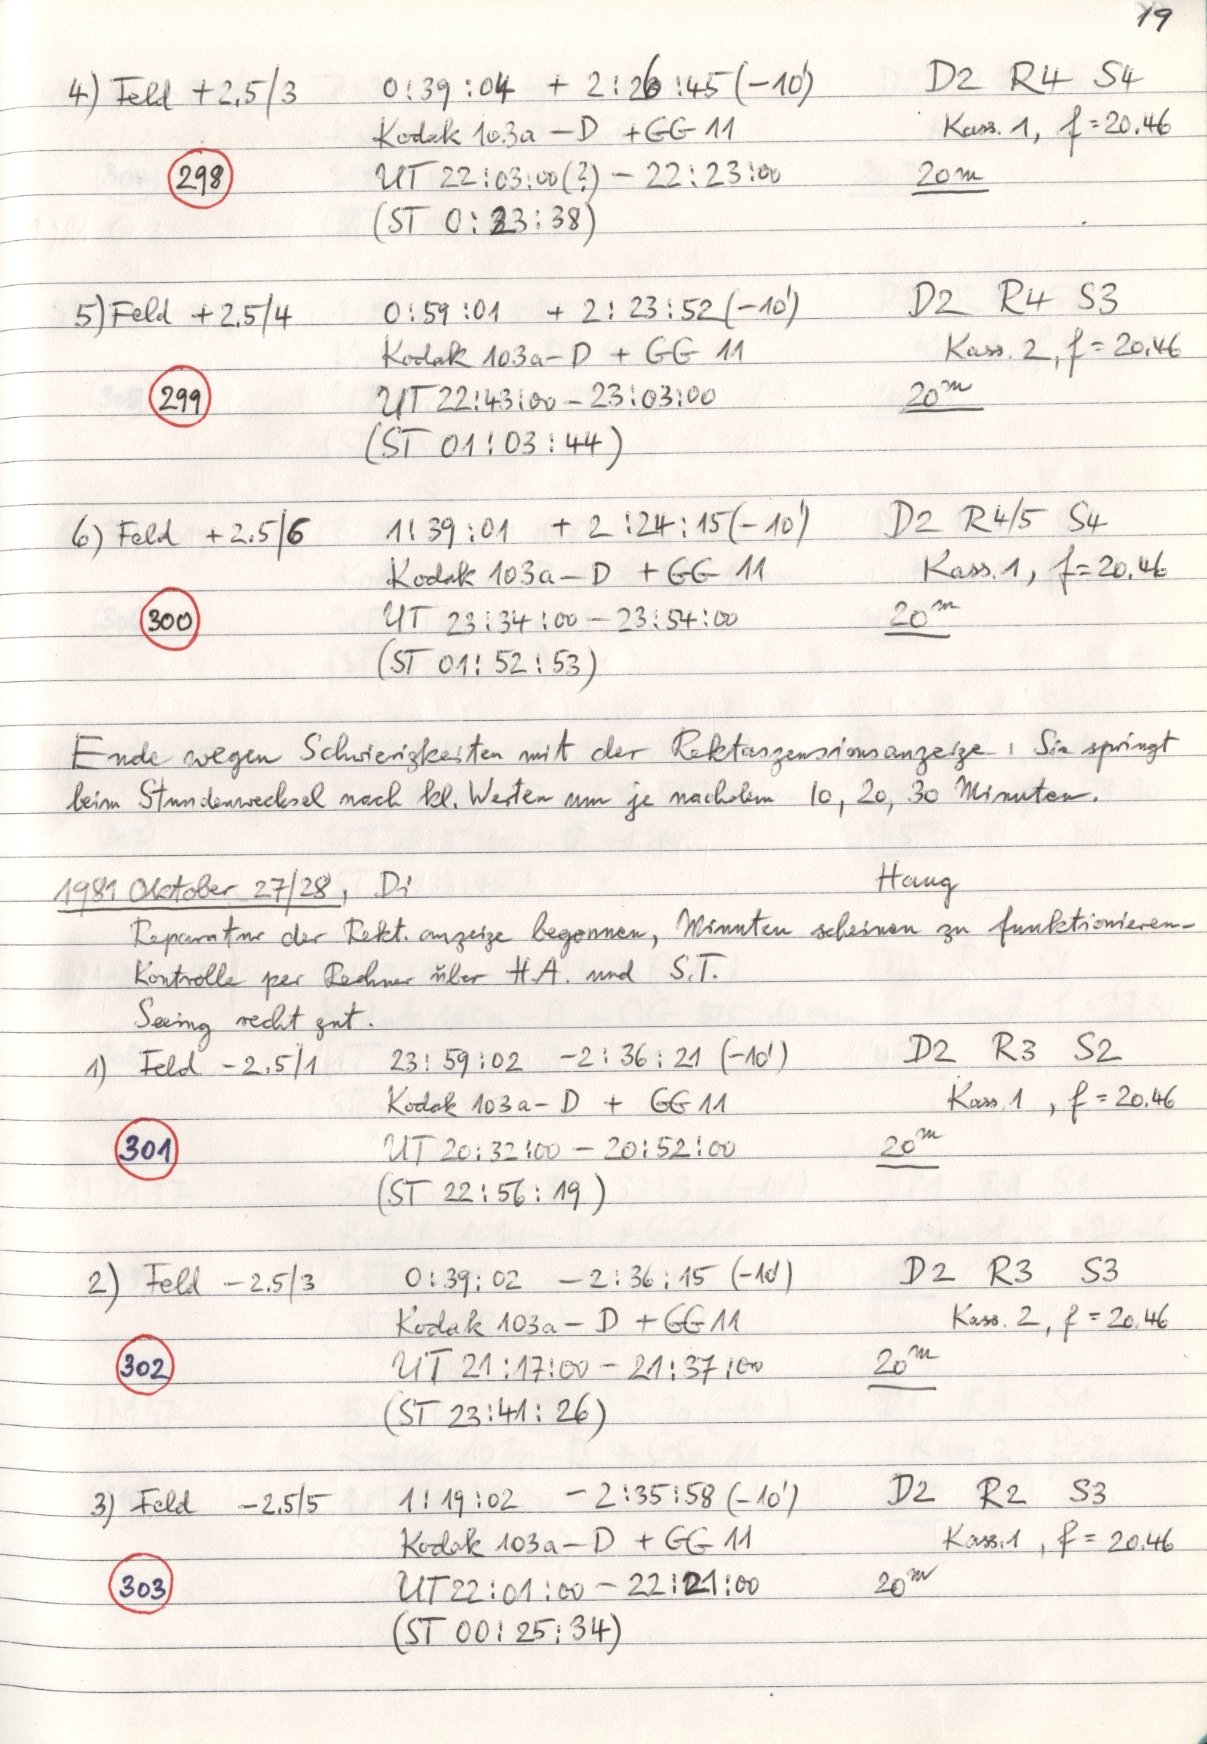 19
4) Feld +2.5/3 0:39:04 + 2:26:45 (-10') D2 R4 S4
Kodak 103a-D + GG 11 Kass. 1, f=20.46
298 UT 22:03:00(?) - 22:23:00 20m
(ST 0:23:38)
5) Feld +2.5/4 0:59:01 + 2:23:52 (-10') D2 R4 S3
Kodak 103a-D + GG 11 Kass. 2, f=20.46
299 UT 22:43:00 - 23:03:00 20m
(ST 01:03:44)
6) Feld +2.5/6 1:39:01 + 2:24:15 (-10') D2 R4/5 S4
Kodak 103a-D + GG 11 Kass. 1, f=20.46
300 UT 23:34:00 - 23:54:00 20m
(ST 01:52:53)
Ende wegen Schwierigkeiten mit der Rektaszensionsanzeige: Sie springt
beim Stundenwechsel nach kl. Werten um je nachdem 10, 20, 30 Minuten.
1981 Oktober 27/28, Di Haug
Reparatur der Rekt. anzeige begonnen, Minuten scheinen zu funktionieren-
Kontrolle per Rechner über H.A. und S.T.
Seeing recht gut.
1) Feld -2.5/1 23:59:02 -2:36:21 (-10') D2 R3 S2
Kodak 103a-D + GG 11 Kass. 1, f=20.46
301 UT 20:32:00 - 20:52:00 20m
(ST 22:56:19)
2) Feld -2.5/3 0:39:02 -2:36:15 (-10') D2 R3 S3
Kodak 103a-D + GG 11 Kass. 2, f=20.46
302 UT 21:17:00 - 21:37:00 20m
(ST 23:41:26)
3) Feld -2.5/5 1:19:02 -2:35:58 (-10') D2 R2 S3
Kodak 103a-D + GG 11 Kass. 1, f=20.46
303 UT 22:01:00 - 22:21:00 20m
(ST 00:25:34)